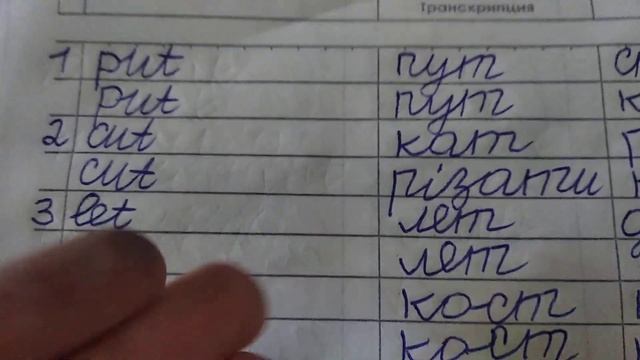 Транскрипция
1 put пут
put пут к
2 cut кат
cut різати
3 let лет
лет
кост
кост